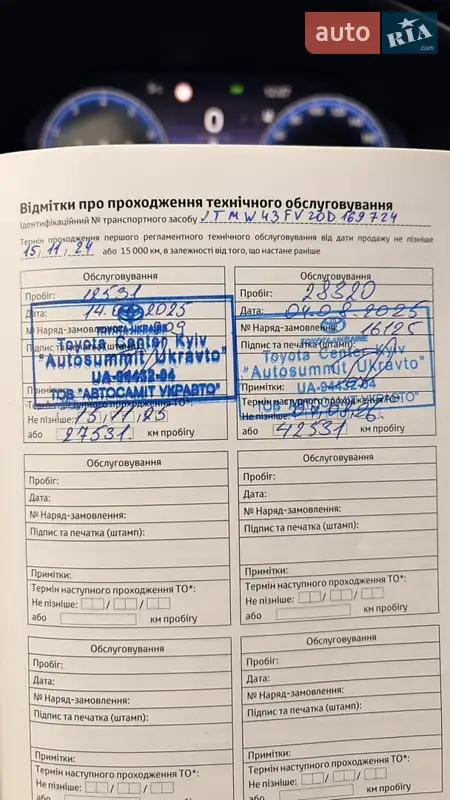 auto RIA .com
0
Відмітки про проходження технічного обслуговування
Ідентифікаційний № транспортного засобу JTMW43FV20D169724
Термін проходження першого регламентного технічного обслуговування від дати продажу не пізніше
15,11,24 або 15 000 км, в залежності від того, що настане раніше
Обслуговування
Пробіг: 12531
Дата: 14. 2025
№ Наряд-замовлення:
Підпис та печатка
TOYOTA UKRAINE
Toyota Center Kyiv
"Autosummit/Ukravto"
UA-04432-04
ТОВ "АВТОСАМІТ УКРАВТО"
Примітки:
Термін наступного проходження ТО*:
Не пізніше: 15,11,25
або 27531. км пробігу
Обслуговування
Пробіг: 28320
Дата: 04.08.2025
№ Наряд-замовлення: 16125
Підпис та печатка (штамп):
TOYOTA UKRAINE
Toyota Center Kyiv
"Autosummit/Ukravto"
Примітки: UA-04432-04
Термін наступного проходження ТО*:
Не пізніше:
або 42531 км пробігу
Обслуговування
Пробіг:
Дата:
№ Наряд-замовлення:
Підпис та печатка (штамп):
Примітки:
Термін наступного проходження ТО*:
Не пізніше: / /
або км пробігу
Обслуговування
Пробіг:
Дата:
№ Наряд-замовлення:
Підпис та печатка (штамп):
Примітки:
Термін наступного проходження ТО*:
Не пізніше: / /
або км пробігу
Обслуговування
Пробіг:
Дата:
№ Наряд-замовлення:
Підпис та печатка (штамп):
Примітки:
Термін наступного проходження ТО*:
Не пізніше: / /
або км пробігу
Обслуговування
Пробіг:
Дата:
№ Наряд-замовлення:
Підпис та печатка (штамп):
Примітки:
Термін наступного проходження ТО*:
Не пізніше: / /
або км пробігу